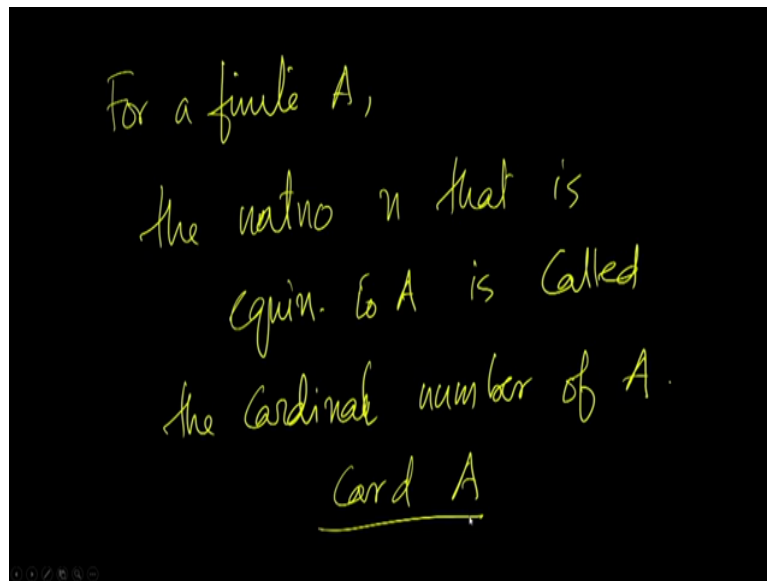 For a finite A,
the natno n that is
equin. to A is Called
the Cardinal number of A.
Card A